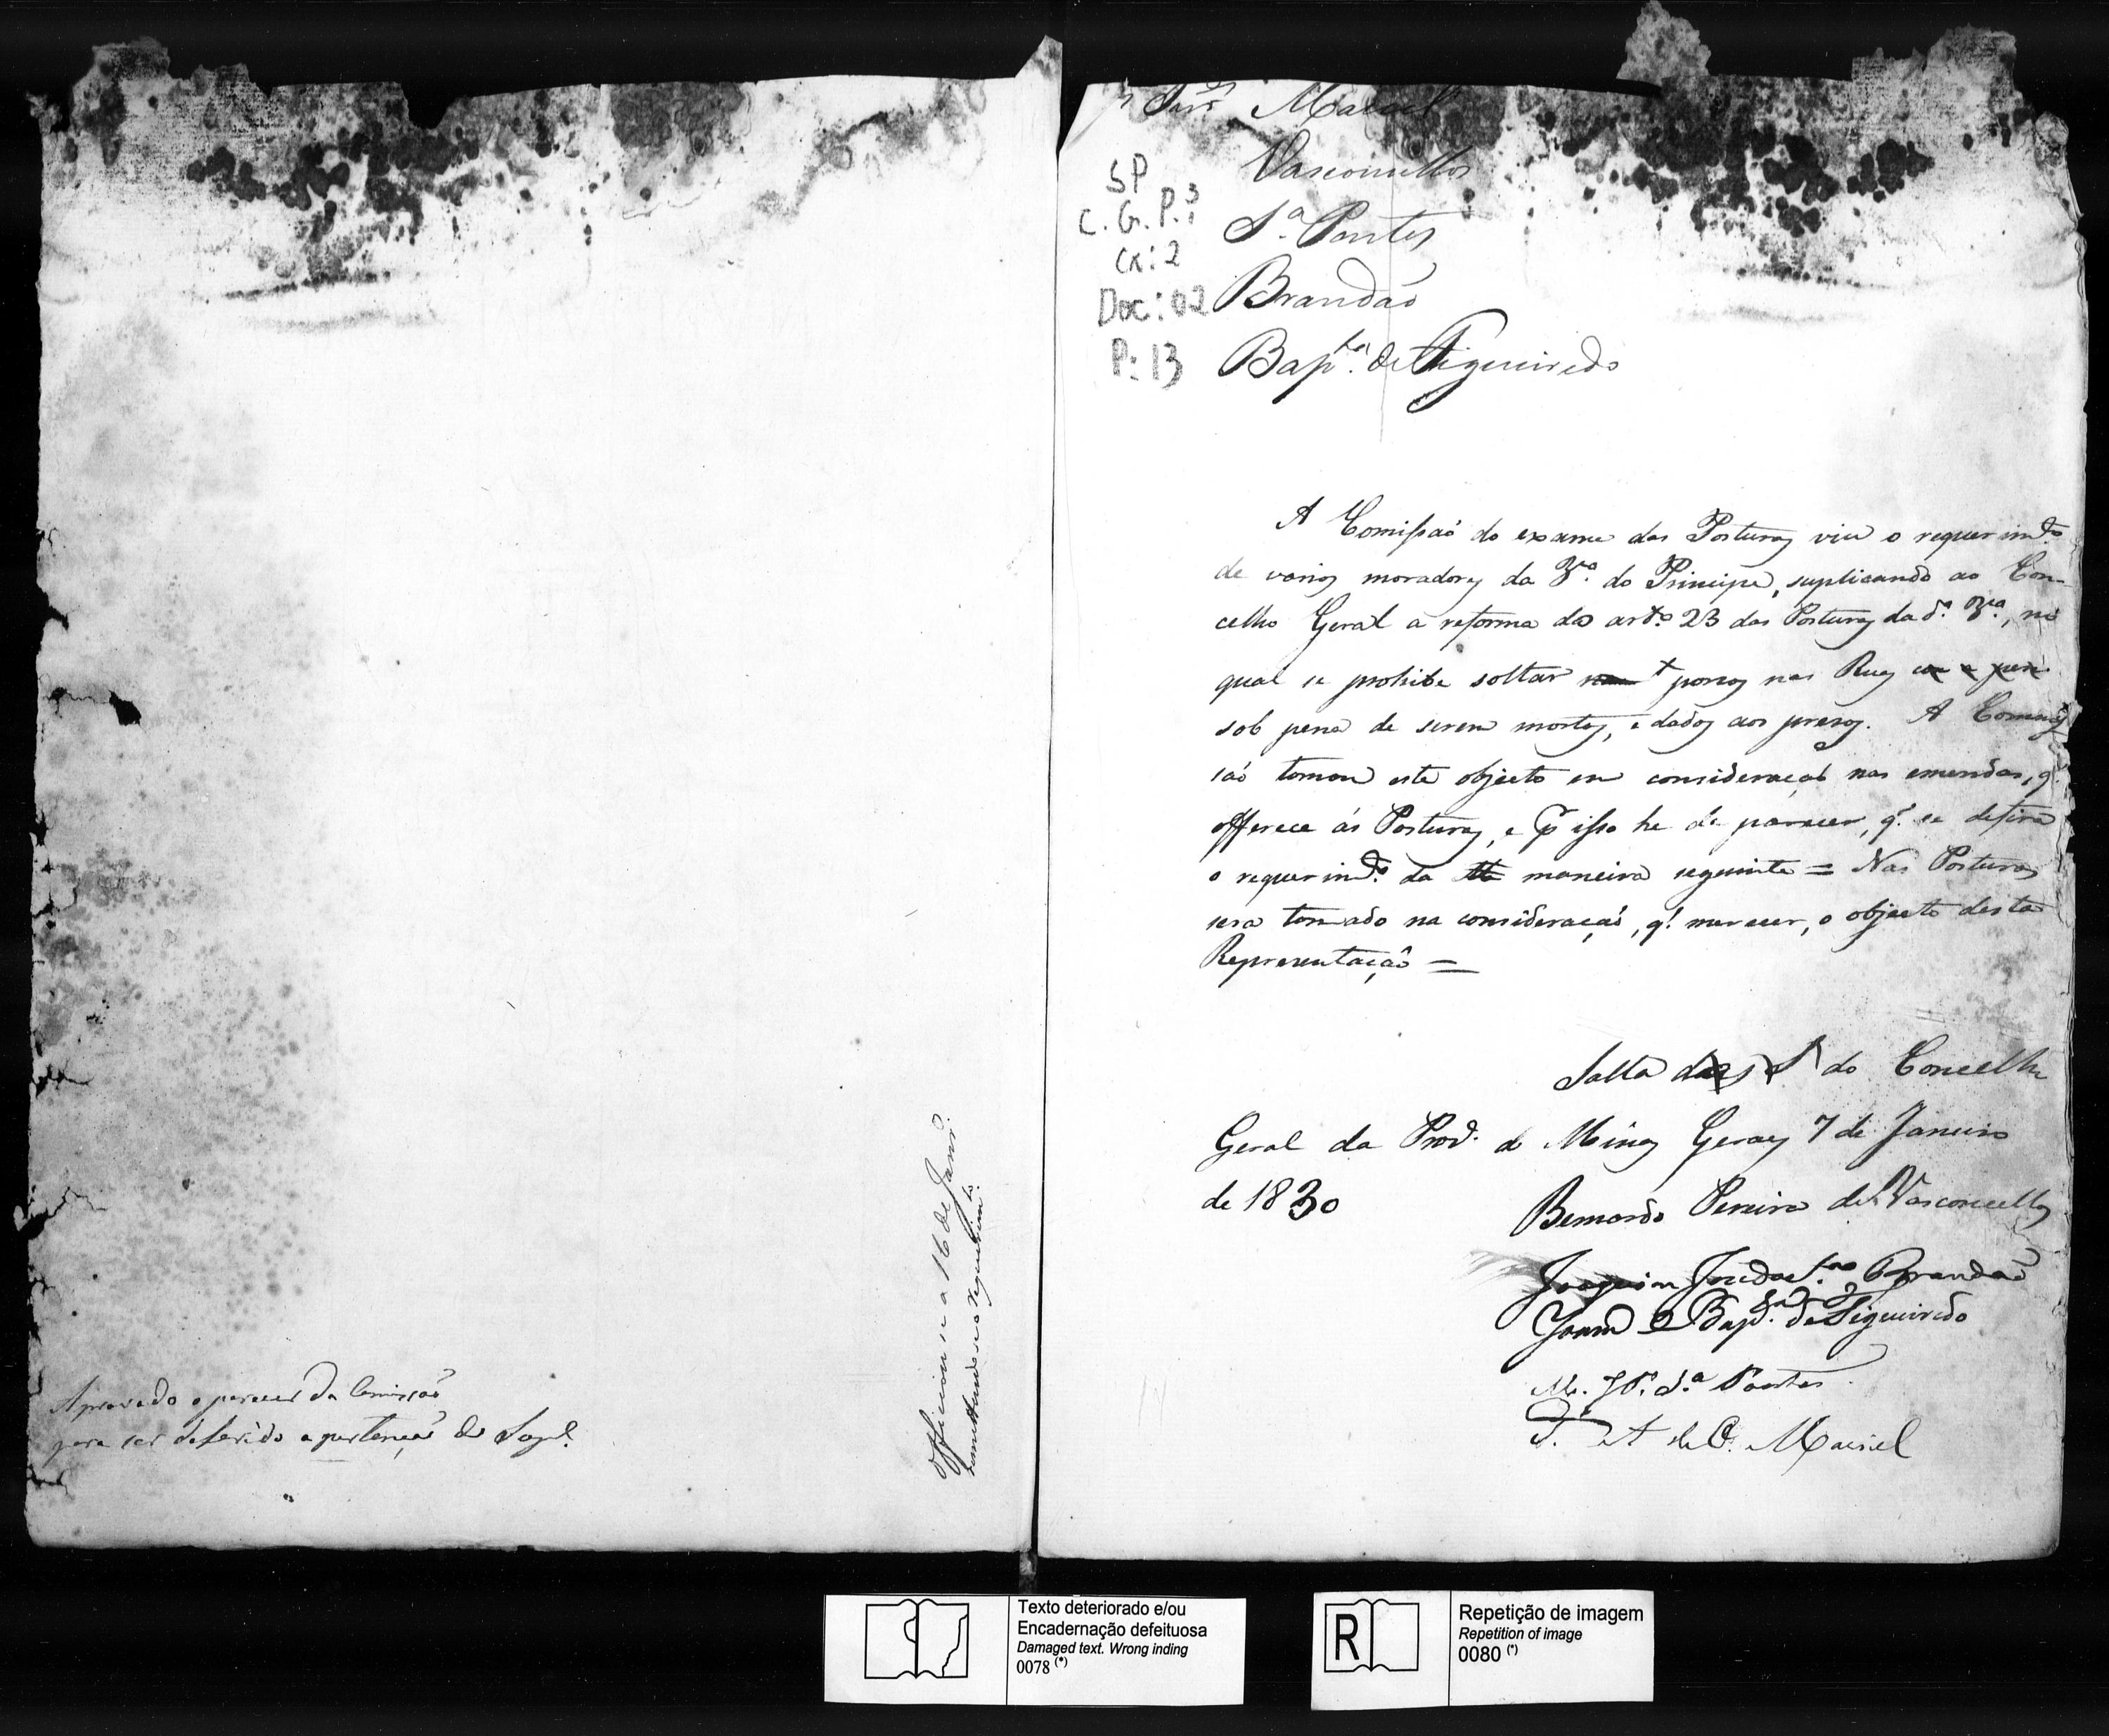 Aprovado o parecer da Comissaõ
para ser deferido a pertençaõ do Supe.
Officiou-se a 16 de Janro.
remettendo-se o requerimto.
Maciel
Vasconcellos
Sa. Pontes
Brandaõ
Bapta. de Figueiredo
SP
C. G. P.3
cx: 2
Doc: 02
P: 13
A Comissaõ do exame das Posturas viu o requerimto.
de varios moradores da Va. do Principe, suplicando ao Con-
celho Geral a reforma do arto. 23 das Posturas da da. Va., no
qual se prohibe soltar porcos nas Ruas
sob pena de serem mortos, e dados aos presos. A Comis-
saõ tomou este objecto em consideraçaõ nas emendas, q.
offerece ás Posturas, e pr isso he de parecer, q. se defira
o requerimto. da maneira seguinte = Nas Posturas
sera tomado na consideraçaõ, q. merecer, o objecto desta
Representaçaõ =
Salla do Concelho
Geral da Prova. de Minas Geraes 7 de Janeiro
de 1830
Bernardo Pereira de Vasconcellos
Joaquim José da Sa. Brandaõ
Bapta. de Figueiredo
M. J. P. Sa. Pontes
J. A de C. Maciel
Texto deteriorado e/ou
Encadernação defeituosa
Damaged text. Wrong inding
0078 (*)
R
Repetição de imagem
Repetition of image
0080 (*)